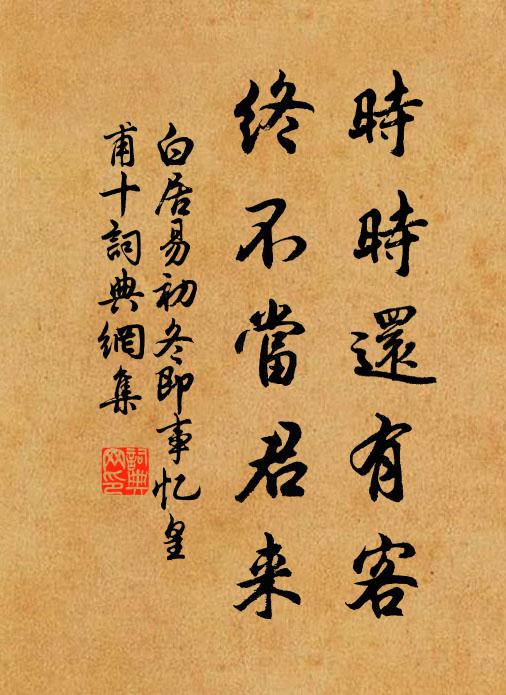 時時還有客
終不當君来
白居易初冬即事忆皇
甫十詞典網集
詞典
网印